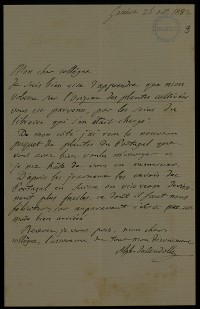 Genève 26 oct. 1882
3
Mon cher collègue
Je suis bien aise d'apprendre que mon
volume sur l'Origine des plantes cultivées
vous est parvenu, par les soins du
libraire qui s'en était chargé.
De mon côté j'ai reçu le nouveau
paquet de plantes du Portugal que
vous avez bien voulu m'envoyer et
je me hâte de vous en remercier.
D'après les journaux les envois de
Portugal en Suisse ou vice versa
plus faciles, ce dont il faut nous
féliciter, car auparavant
Recevez, je vous prie, mon cher
collègue, l'assurance de tout mon dévouement
Alph. DeCandolle